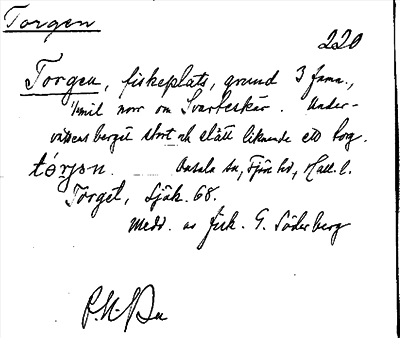 Torgen
220
Torgen, fiskeplats, grund 3 famn.,
1 mil norr om Svarteskär. Under-
vattensberget stort och slätt liknande ett torg.
tórjən. Onsala sn, Fjäre hd, Hall. l.
Torget, Sjök. 68.
Medd. av fisk. G. Söderberg